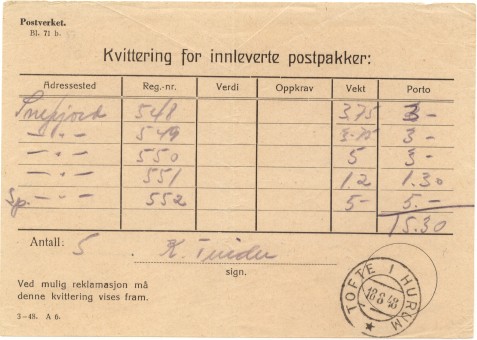 Postverket.
Bl. 71 b.
Kvittering for innleverte postpakker:
Adressested Reg.-nr. Verdi Oppkrav Vekt Porto
Snefjord 548 3.75 3 -
- " - 549 3.75 3 -
- " - 550 5 3 -
- " - 551 1.2 1.30
Sp. - " - 552 5 - 5. -
15.30
Antall: 5 K.
sign.
Ved mulig reklamasjon må
denne kvittering vises fram.
3-48. A 6.
TOFTE I HURUM
18 6 48